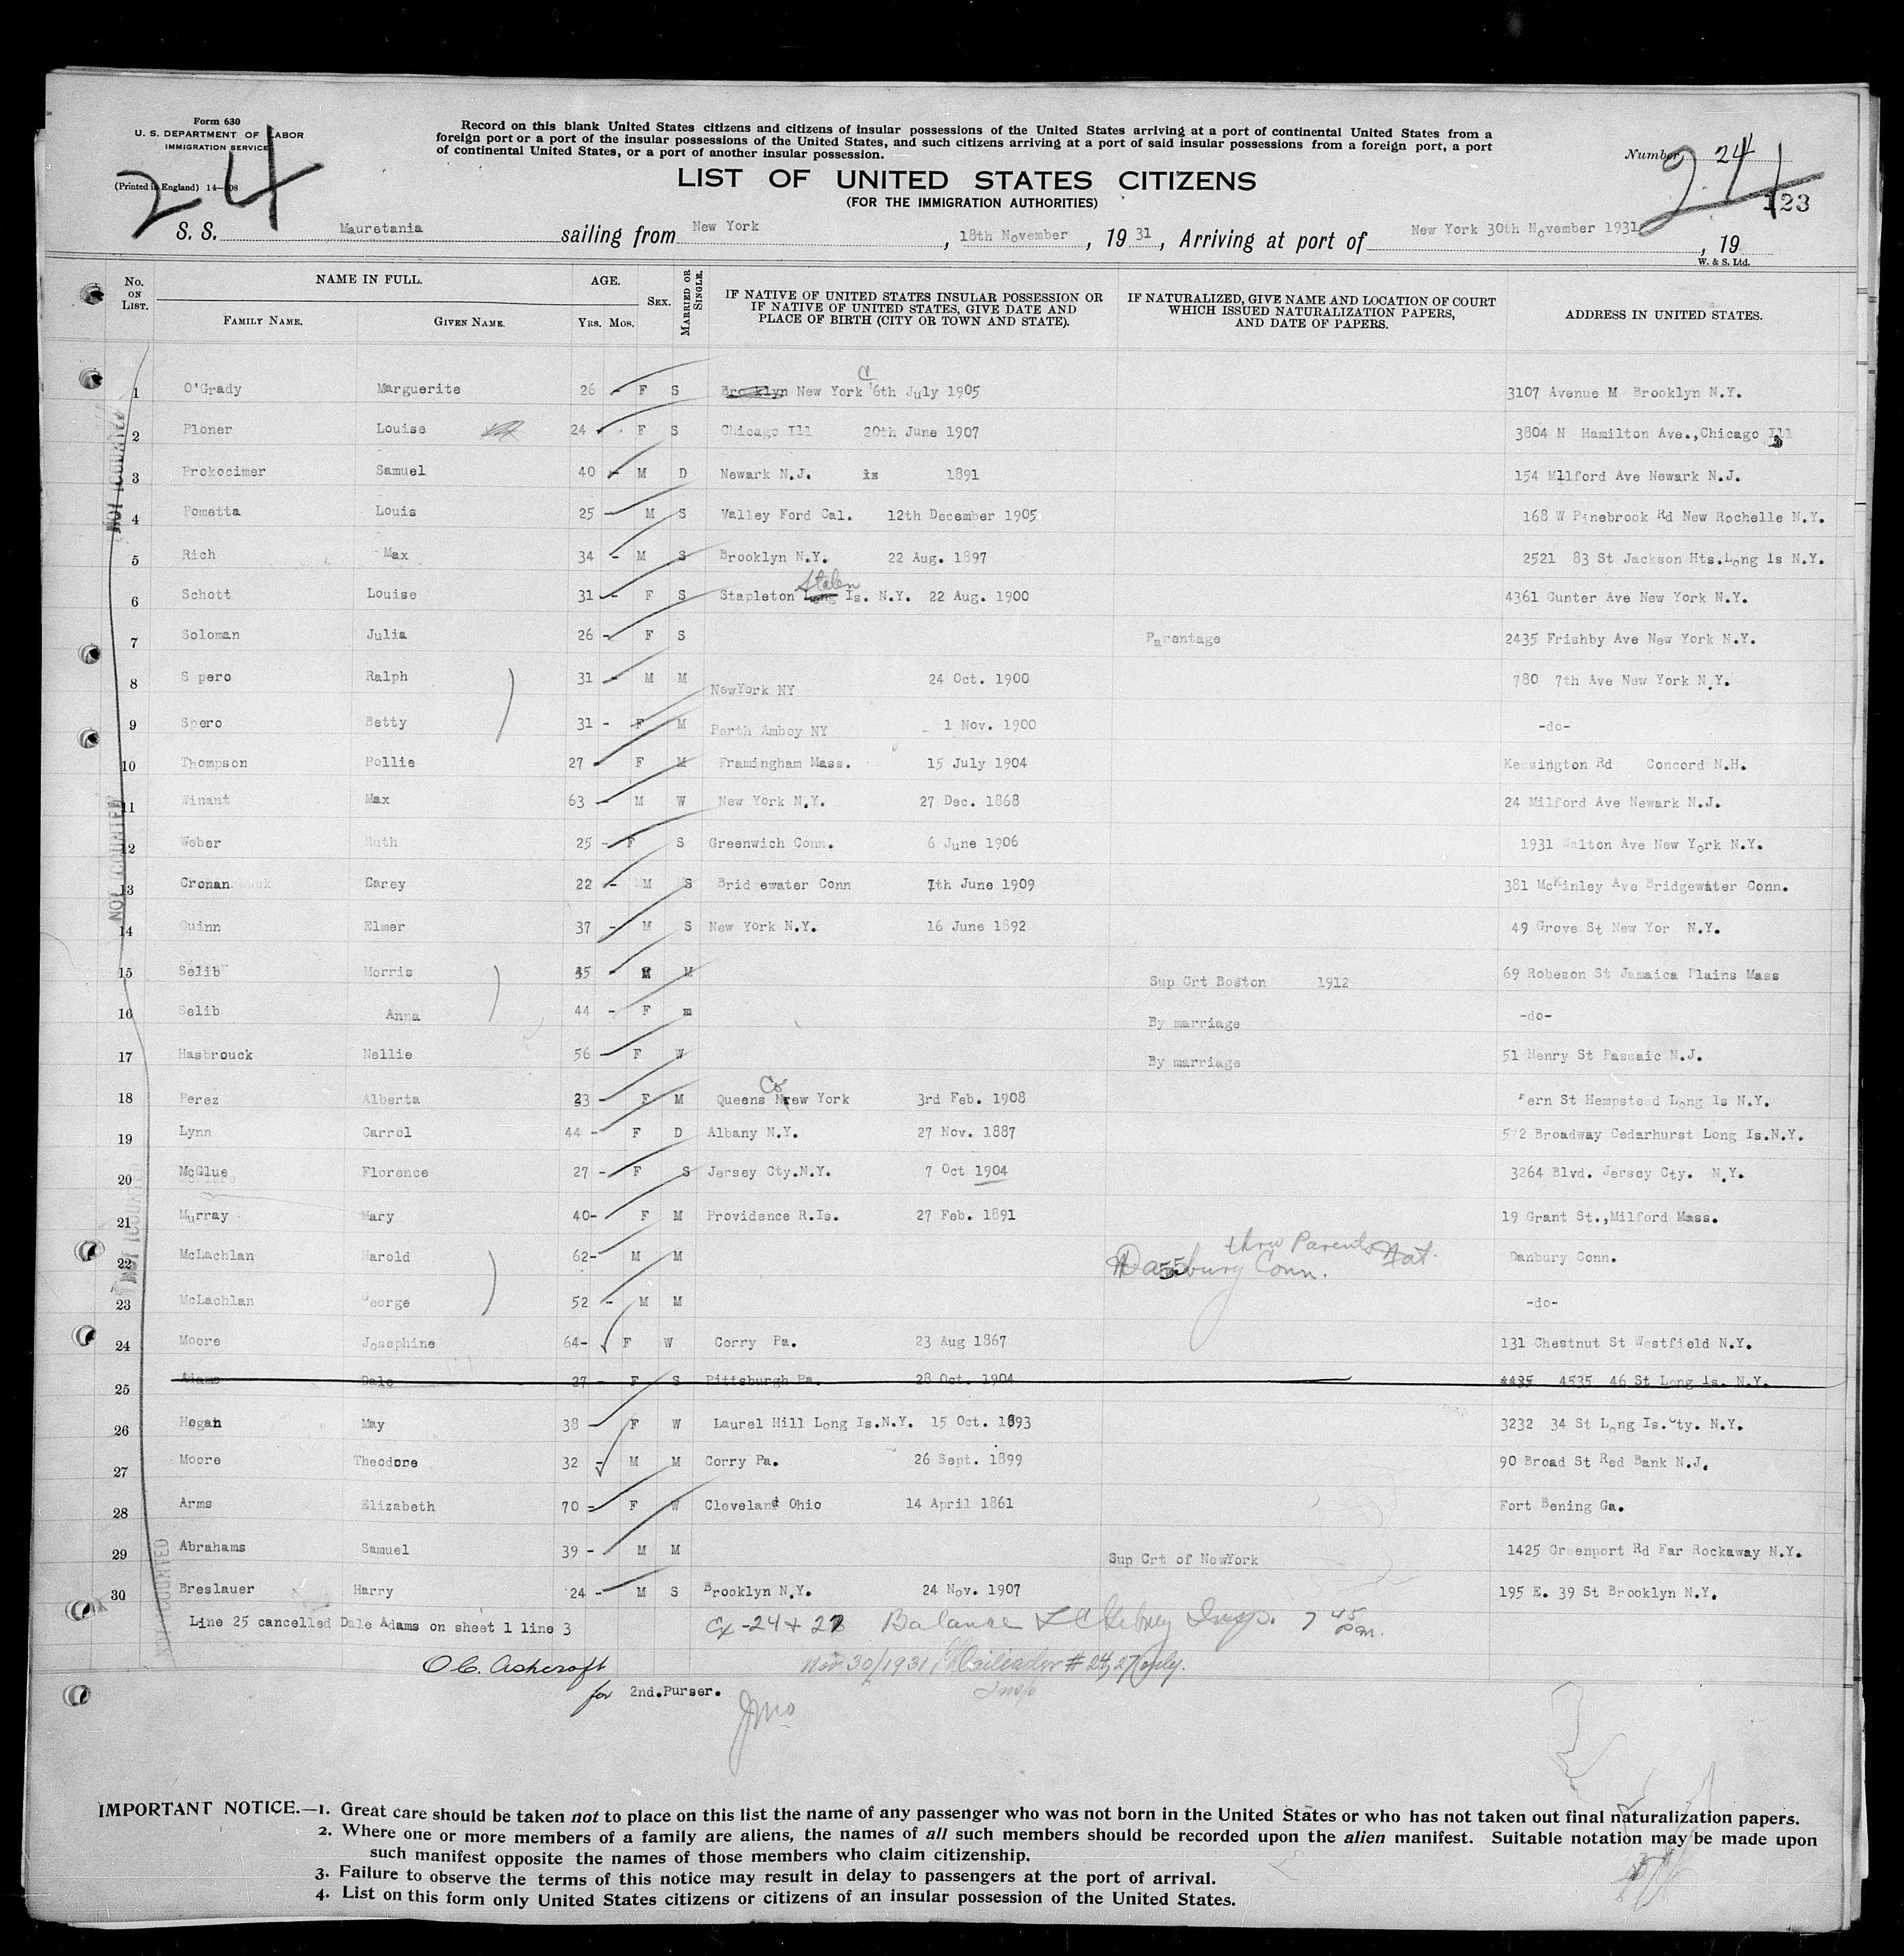 Form 630
U. S. DEPARTMENT OF LABOR
IMMIGRATION SERVICE
(Printed in England) 14—608
24
Record on this blank United States citizens and citizens of insular possessions of the United States arriving at a port of continental United States from a
foreign port or a port of the insular possessions of the United States, and such citizens arriving at a port of said insular possessions from a foreign port, a port
of continental United States, or a port of another insular possession.
LIST OF UNITED STATES CITIZENS
(FOR THE IMMIGRATION AUTHORITIES)
Number 24
24
123
S. S. Mauretania sailing from New York, 18th November, 1931, Arriving at port of New York 30th November 1931, 19
W. & S. Ltd.
No. ON LIST. NAME IN FULL. AGE. SEX. MARRIED OR SINGLE. IF NATIVE OF UNITED STATES INSULAR POSSESSION OR IF NATIVE OF UNITED STATES, GIVE DATE AND PLACE OF BIRTH (CITY OR TOWN AND STATE). IF NATURALIZED, GIVE NAME AND LOCATION OF COURT WHICH ISSUED NATURALIZATION PAPERS, AND DATE OF PAPERS. ADDRESS IN UNITED STATES.
FAMILY NAME. GIVEN NAME. YRS. MOS.
1 O'Grady Marguerite 26 - F S Brooklyn New York C 6th July 1905 3107 Avenue M Brooklyn N.Y.
2 Ploner Louise 24 F S Chicago Ill 20th June 1907 3804 N Hamilton Ave.,Chicago Ill
3 Prokocimer Samuel 40 - M D Newark N.J. 1891 154 Milford Ave Newark N.J.
4 Pometta Louis 25 - M S Valley Ford Cal. 12th December 1905 168 W Pinebrook Rd New Rochelle N.Y.
5 Rich Max 34 - M S Brooklyn N.Y. 22 Aug. 1897 2521 83 St Jackson Hts.Long ls N.Y.
6 Schott Louise 31 - F S Stapleton Long Staten Is. N.Y. 22 Aug. 1900 4361 Gunter Ave New York N.Y.
7 Soloman Julia 26 - F S Parentage 2435 Frishby Ave New York N.Y.
8 S pero Ralph 31 - M M NewYork NY 24 Oct. 1900 780 7th Ave New York N.Y.
9 Spero Betty 31 - F M Perth Amboy NY 1 Nov. 1900 -do-
10 Thompson Pollie 27 F M Framingham Mass. 15 July 1904 Kensington Rd Concord N.H.
11 Winant Max 63 - M W New York N.Y. 27 Dec. 1868 24 Milford Ave Newark N.J.
12 Weber Ruth 25 - F S Greenwich Conn. 6 June 1906 1931 Walton Ave New York N.Y.
13 Cronan Carey 22 - M S Brid ewater Conn 7th June 1909 381 McKinley Ave Bridgewater Conn.
14 Quinn Elmer 37 - M S New York N.Y. 16 June 1892 49 Grove St New Yor N.Y.
15 Selib Morris 45 - M M Sup Crt Boston 1912 69 Robeson St Jamaica Plains Mass
16 Selib Anna 44 - F m By marriage -do-
17 Hasbrouck Nellie 56 F W By marriage 51 Henry St Passaic N.J.
18 Perez Alberta 23 F M Queens Co New York 3rd Feb. 1908 Fern St Hempstead Long Is N.Y.
19 Lynn Carrol 44 - F D Albany N.Y. 27 Nov. 1887 572 Broadway Cedarhurst Long Is.N.Y.
20 McGlue Florence 27 - F S Jersey Cty.N.Y. 7 Oct 1904 3264 Blvd. Jersey Cty. N.Y.
21 Murray Mary 40- F M Providence R.Is. 27 Feb. 1891 19 Grant St.,Milford Mass.
22 McLachlan Harold 62- M M Danbury Conn. thru Parents Nat. Danbury Conn.
23 McLachlan George 52 - M M -do-
24 Moore Josephine 64- F W Corry Pa. 23 Aug 1867 131 Chestnut St Westfield N.Y.
25 Adams Dale 27 - F S Pittsburgh Pa. 28 Oct. 1904 4435 4535 46 St Long Is. N.Y.
26 Hogan May 38 - F W Laurel Hill Long Is.N.Y. 15 Oct. 1893 3232 34 St Long Is.Cty. N.Y.
27 Moore Theodore 32 - M M Corry Pa. 26 Sept. 1899 90 Broad St Red Bank N.J.
28 Arms Elizabeth 70 - F W Cleveland Ohio 14 April 1861 Fort Bening Ga.
29 Abrahams Samuel 39 - M M Sup Crt of NewYork 1425 Greenport Rd Far Rockaway N.Y.
30 Breslauer Harry 24 - M S Brooklyn N.Y. 24 Nov. 1907 195 E. 39 St Brooklyn N.Y.
NOT COUNTED
NOT COUNTED
NOT COUNTED
NOT COUNTED
Line 25 cancelled Dale Adams on sheet 1 line 3
Ex -24+27 Balance Insp. 7 45 pm.
O C. Ashcroft
Nov 30/1931 # 24, 27 only.
Insp
for 2nd.Purser.
IMPORTANT NOTICE.—1. Great care should be taken not to place on this list the name of any passenger who was not born in the United States or who has not taken out final naturalization papers.
2. Where one or more members of a family are aliens, the names of all such members should be recorded upon the alien manifest. Suitable notation may be made upon
such manifest opposite the names of those members who claim citizenship.
3. Failure to observe the terms of this notice may result in delay to passengers at the port of arrival.
4. List on this form only United States citizens or citizens of an insular possession of the United States.